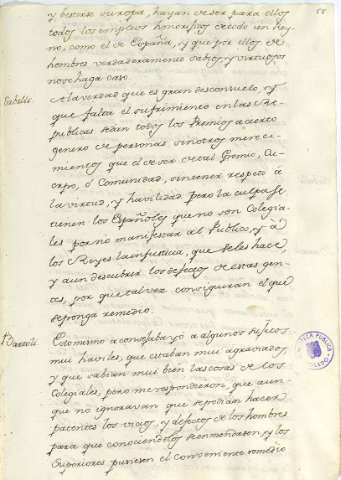 y bescar europa, hayan de ser para ellos
todos los empleos honorificos de todo un Rey
no, como el de España, y que por ellos de
hombres verdaderamente sabios, y virtuosos
no se haga caso.
A la verdad que es gran desconsuelo, y
que falta el sufrimiento en las Re-
publicas dar todos los Premios a cierto
genero de personas sin otros mereci-
mientos que el de ser de tal Gremio, Cu-
erpo, ó Comunidad, sin tener respeto á
la virtud, y havilidad pero la culpa se
tienen los Españoles que no son Colegia-
les por no manifestar al Publico, y á
los Reyes la injusticia, que se les hace
y aun descubrir los defectos de estas gen-
tes, por que tal vez conseguirian el que
se ponga remedio.
Esto mismo aconsejaba yo a algunos sugetos
mui haviles, que estaban mui agraviados,
y que sabian mui bien las cosas de los
Colegiales, pero me respondieron, que aun-
que no ignoravan que se podian hacer
patentes los vicios, y defectos de los hombres
para que conociendolos se enmendasen, y los
Superiores pusiesen el conveniente remedio